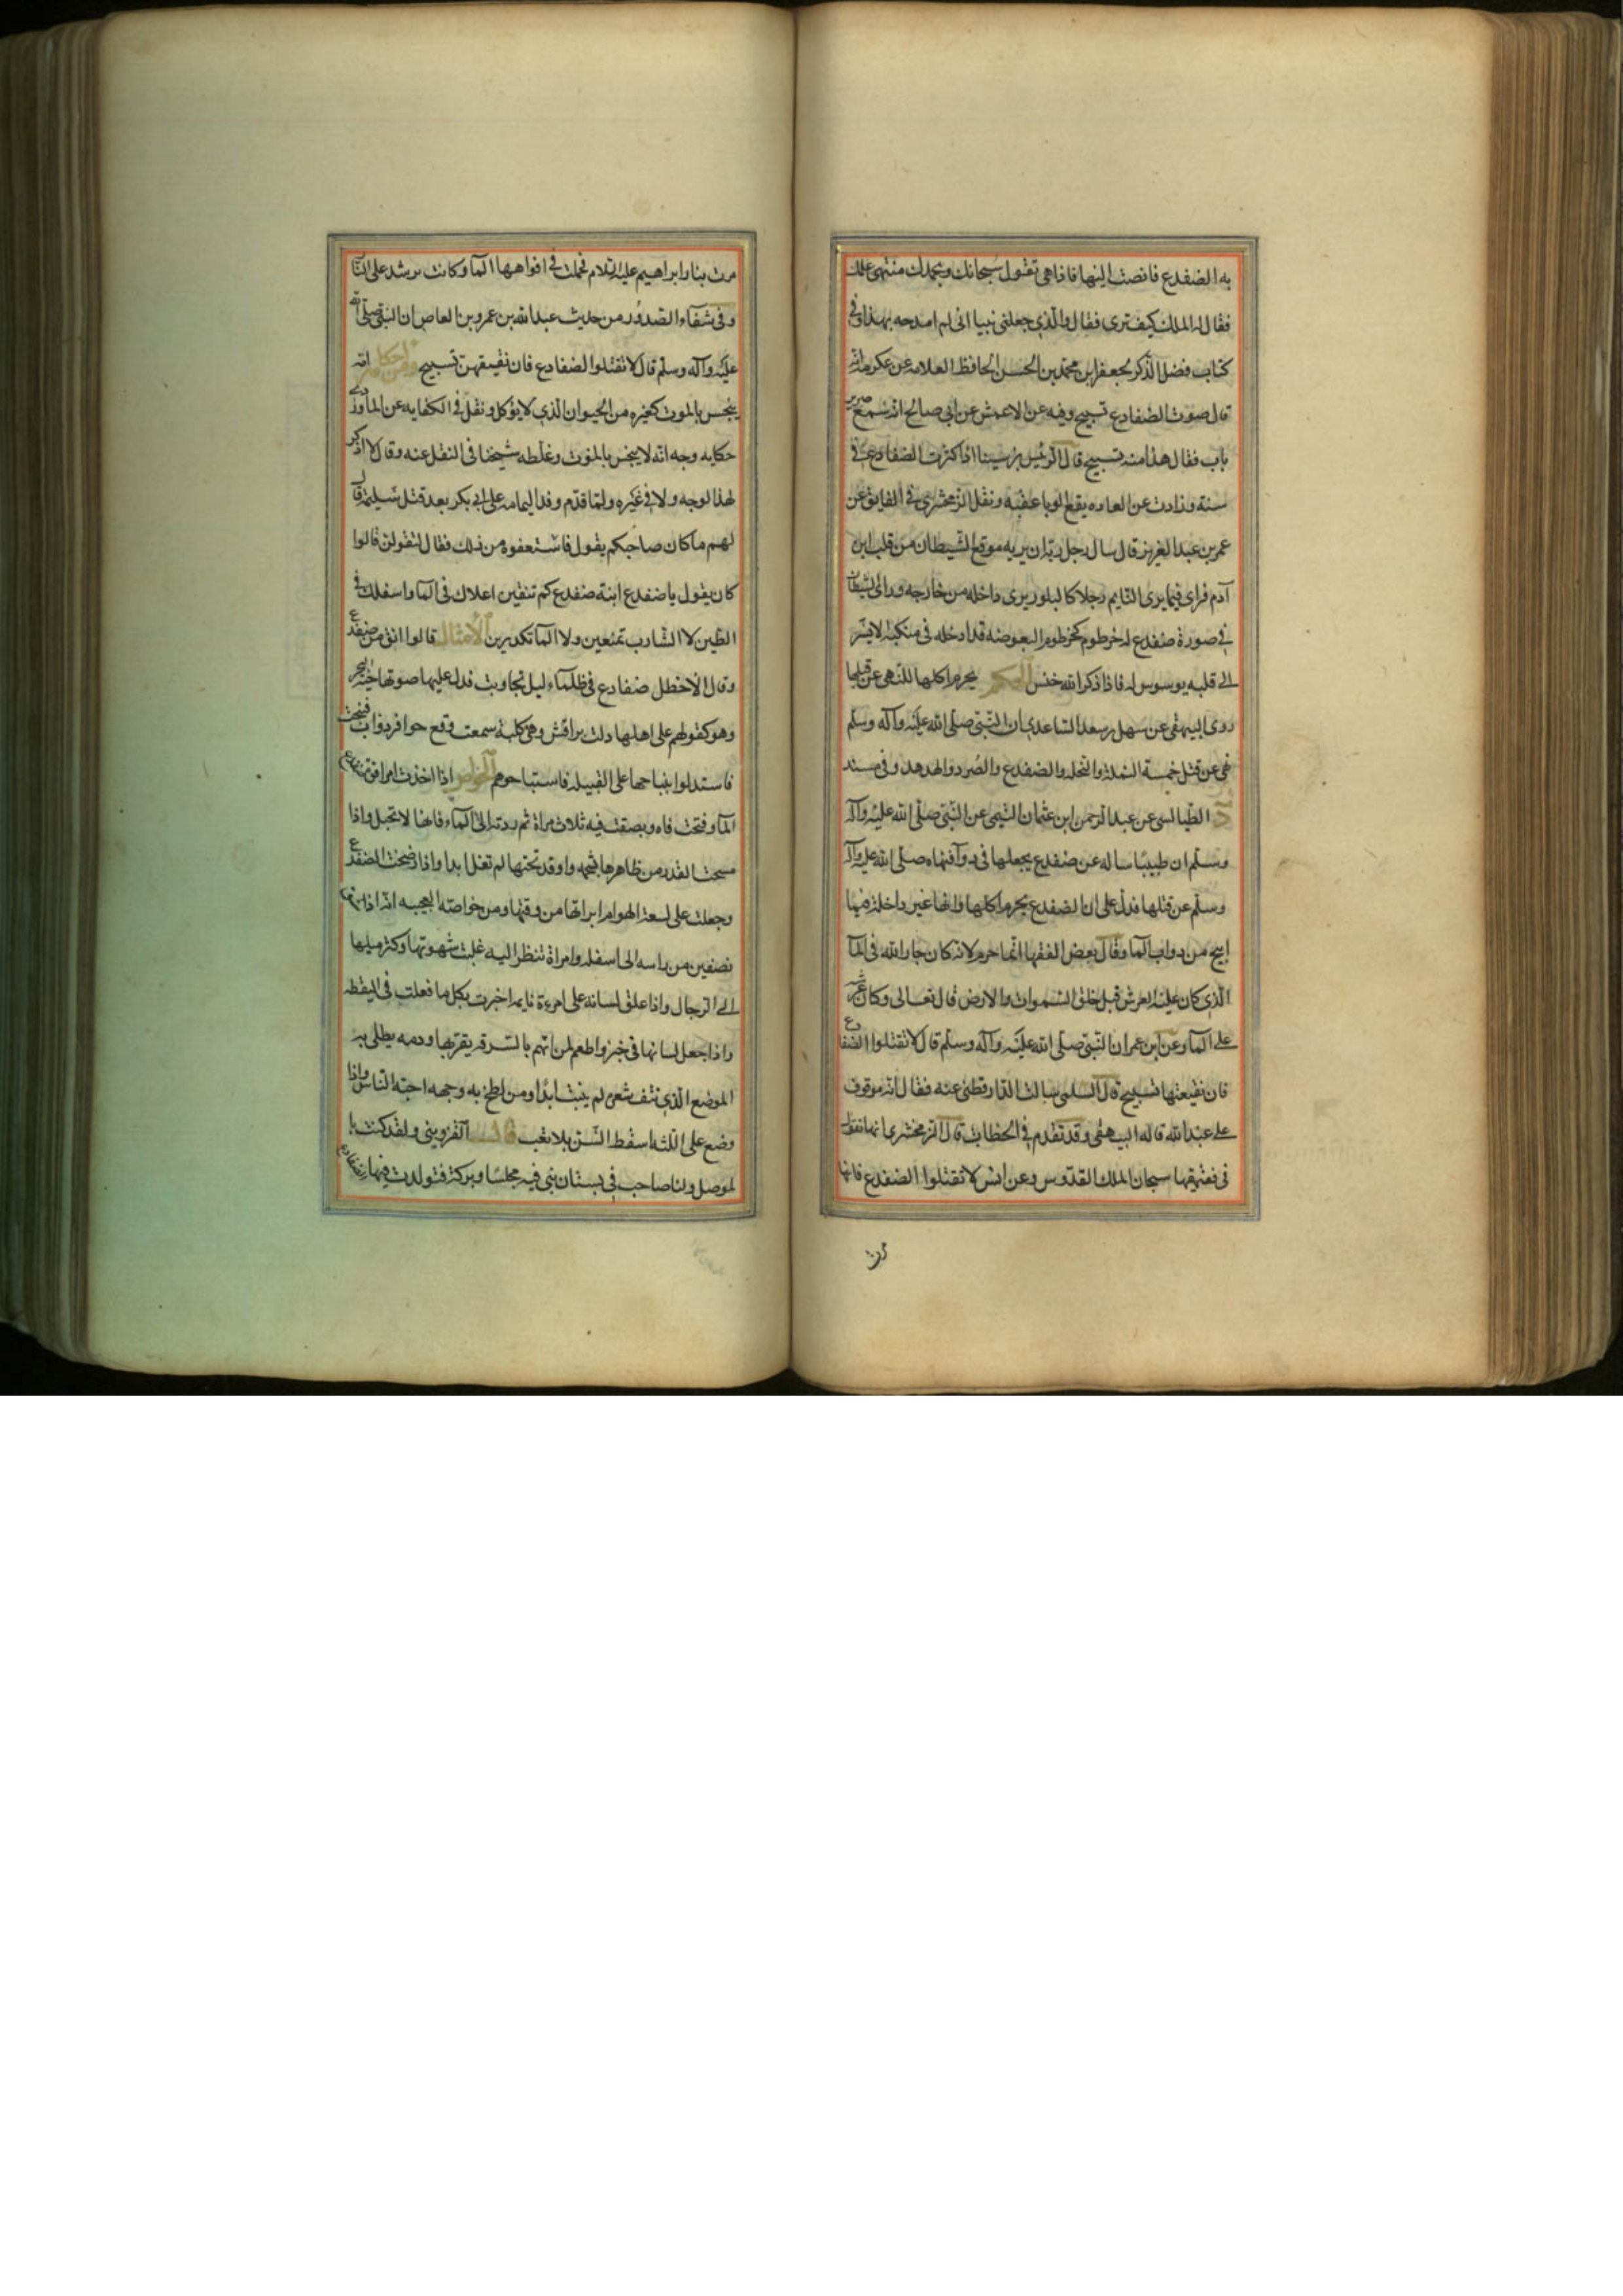 به الضفدع فانصت اليها فاذا هى تقول سبحانك وبحمدك منتهى علمك
فقال له الملك كيف ترى فقال والذى جعلنى نبيا انى لم امدحه بهذا وفى
كتاب فضل الذكر لجعفر ابن محمد بن الحسن الحافظ العلامه عن عكرمه انه
قال صوت الضفادع تسبيح وفيه عن الاعمش عن ابى صالح انه سمع صرير
باب فقال هذا منه تسبيح قال الرئيس بن سينا اذا كثرت الضفادع فى
سنة وزادت عن العاده يقع الوبا عقبه ونقل الزمخشرى فى الفايق عن
عمر بن عبد العزيز قال سال رجل ربه ان يريه موقع الشيطان من قلب ابن
آدم فراى فيما يرى النايم رجلا كالبلور يرى داخله من خارجه وراى الشيطان
فى صورة ضفدع له خرطوم كخرطوم البعوضه قد ادخله فى منكبه الايسر
الى قلبه يوسوس له فاذا ذكر الله خنس الحكم يحرم اكلها للنهى عن قتلها
روى البيهقى عن سهل بن سعد الساعدى ان النبى صلى الله عليه وآله وسلم
نهى عن قتل خمسة النملة والنحله والضفدع والصرد والهدهد وفى مسند
الطيالسى عن عبد الرحمن ابن عثمان التيمى عن النبى صلى الله عليه وآله
وسلم ان طبيبا ساله عن ضفدع يجعلها فى دوآ فنهاه صلى الله عليه وآله
وسلم عن قتلها فدل على ان الضفدع يحرم اكلها وانها غير داخلة فيما
ابيح من دواب المآ وقال بعض الفقها انما حرم لانه كان جار الله فى المآ
الذى كان عليه العرش قبل خلق السموات والارض قال تعالى وكان عرشه
على المآ وعن ابن عمر ان النبى صلى الله عليه وآله وسلم قال لا تقتلوا الضفادع
فان نقيقها تسبيح قال السلمى سالت الدارقطنى عنه فقال انه موقوف
على عبد الله قاله البيهقى وقد تقدم فى الخطاب قال الزمخشرى انها تقول
فى نقيقها سبحان الملك القدوس وعن انس لا تقتلوا الضفدع فانها
مرت بنار ابراهيم عليه السلام فحملت فى افواهها المآ وكانت ترشه على النار
وفى شفاء الصدور من حديث عبد الله بن عمرو بن العاص ان النبى صلى الله
عليه وآله وسلم قال لا تقتلوا الضفادع فان نقيقهن تسبيح ومن احكامه انه
ينجس بالموت كغيره من الحيوان الذى لا يؤكل ونقل فى الكفايه عن الماوردى
حكايه وجه انه لا ينجس بالموت وغلطه شيخنا فى النقل عنه وقال لا ذكر
لهذا الوجه ولا فى غيره ولما قدم وفد اليمامه على ابى بكر بعد قتل مسيلمة قال
لهم ما كان صاحبكم يقول فاستعفوه من ذلك فقال لتقولن قالوا
كان يقول يا ضفدع ابنة ضفدع كم تنقين اعلاك فى المآ واسفلك فى
الطين لا الشارب تمنعين ولا المآ تكدرين الامثال قالوا انق من ضفدع
وقال الاخطل ضفادع فى ظلماء ليل تجاوبت فدل عليها صوتها حية البحر
وهو كقولهم على اهلها دلت براقش وهى كلبة سمعت وقع حوافر دواب فنبحت
فاستدلوا بنباحها على القبيله فاستباحوهم الخواص اذا اخذت امراة ضفدع
المآ وفتحت فاه وبصقت فيه ثلاث مراة ثم ردته الى المآء فانها لا تحبل واذا
مسحت القدر من ظاهرها بشحمه واوقد تحتها لم تغل ابدا واذا فسخت الضفدع
وجعلت على لسعة الهوام ابراتها من وقتها ومن خواصه العجيبه انه اذا شق
نصفين من راسه الى اسفله وامراة تنظر اليه غلبت شهوتها وكثر ميلها
الى الرجال واذا علق لسانه على امرءة نايمه اخبرت بكل ما فعلت فى اليقظه
واذا جعل لسانها فى خبز واطعم لمن اتهم بالسرقه يقر بها ودمه يطلى به
الموضع الذى نتف شعره لم ينبت ابدا ومن لطخ به وجهه احبه الناس واذا
وضع على اللثه اسقط السن بلا تعب قال القزوينى ولقد كنت با
لموصل ولنا صاحب فى بستان بنى فيه مجلسا وبركة فتولدت فيها الضفادع
مرت